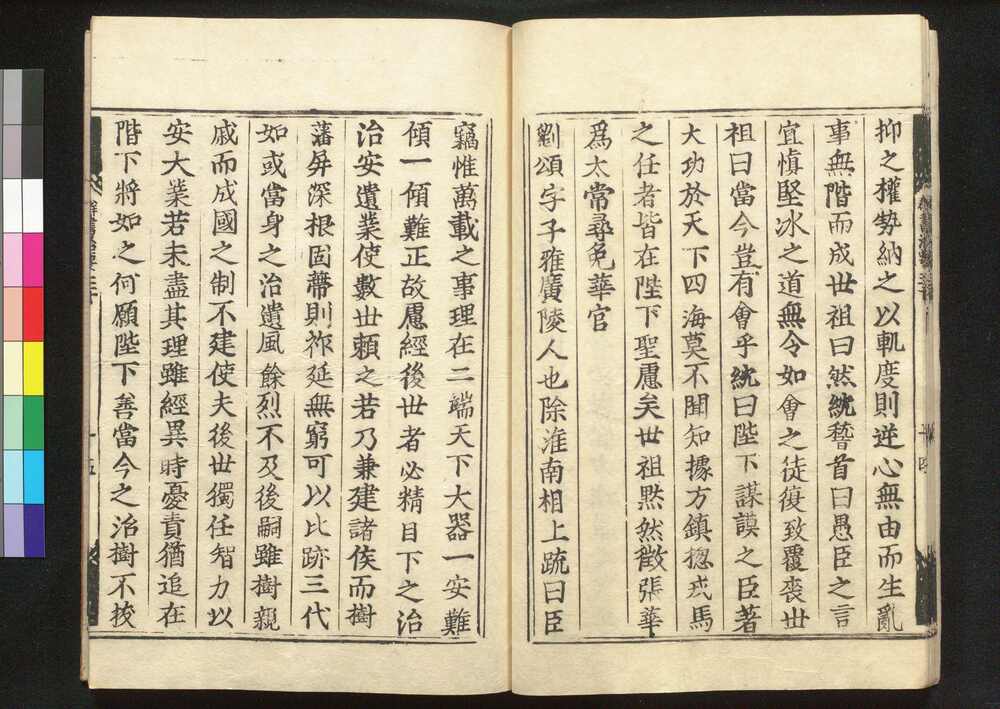 抑之權勢納之以軌度則逆心無由而生亂
事無階而成世祖曰然紞稽首曰愚臣之言
宜慎堅冰之道無令如會之徒復致覆喪世
祖曰當今豈有會乎紞曰陛下謀謨之臣著
大功於天下四海莫不聞知據方鎮揔戎馬
之任者皆在陛下聖慮矣世祖默然徵張華
爲太常尋免華官
劉頌字子雅廣陵人也除淮南相上疏曰臣
竊惟萬載之事理在二端天下大器一安難
傾一傾難正故慮經後世者必精目下之治
治安遺業使數世賴之若乃兼建諸侯而樹
藩屏深根固蔕則祚延無窮可以比跡三代
如或當身之治遺風餘烈不及後嗣雖樹親
戚而成國之制不建使夫後世獨任智力以
安大業若未盡其理雖經異時憂責猶追在
階下將如之何願陛下善當今之治樹不拔